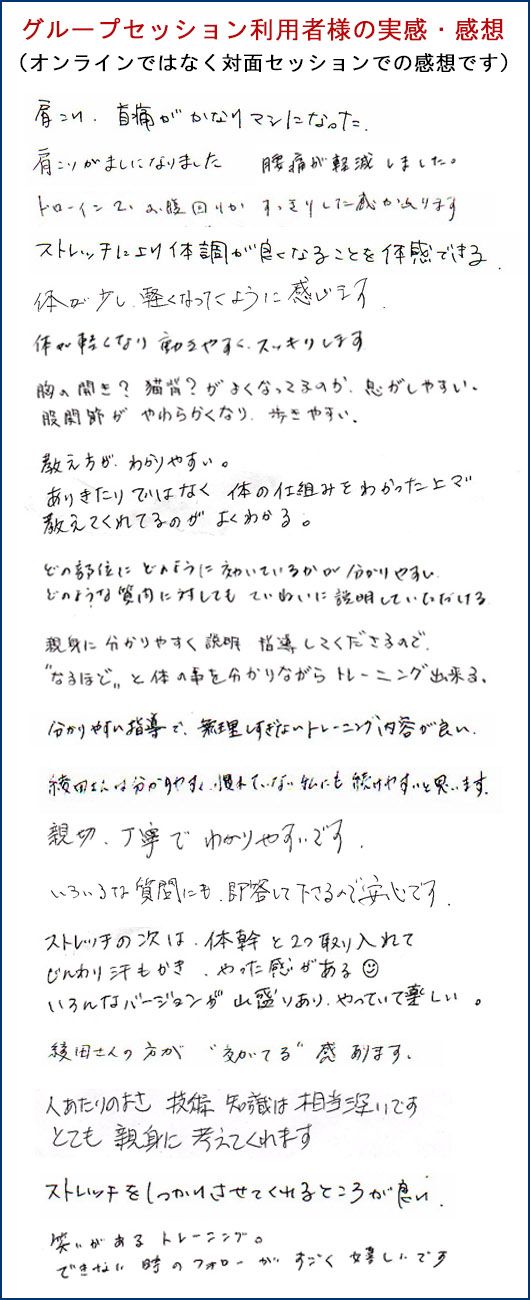 グループセッション利用者様の実感・感想
（オンラインではなく対面セッションでの感想です）
肩こり、首痛がかなりマシになった。
肩こりがましになりました 腰痛が軽減しました。
ドローインで、お腹回りが すっきりした感があります
ストレッチにより体調が良くなることを体感できる。
体が少し軽くなったように感じます。
体が軽くなり動きやすく、スッキリします
胸の開き？猫背？がよくなってるのか、息がしやすい。
股関節が やわらかくなり、歩きやすい。
教え方が、わかりやすい。
ありきたりではなく 体の仕組みをわかった上で
教えてくれてるのが よくわかる。
どの部位に どのように効いているかが 分かりやすい
どのような質問に対しても ていねいに説明していただける
親身に分かりやすく説明 指導してくださるので、
“なるほど„と体の事を分かりながら トレーニング出来る。
分かりやすい指導で、無理しすぎないトレーニング内容が良い。
綾田さんは分かりやすく、慣れていない私にも続けやすいと思います。
親切、丁寧で わかりやすいです。
いろいろな質問にも、即答して下さるので安心です。
ストレッチの次は、体幹と2つ取り入れて
じんわり汗もかき、やった感がある☺
いろんなバージョンが 山盛りあり、やっていて楽しい。
綾田さんの方が “効がてる” 感あります。
人あたりのよさ 技術 知識は相当深いです
とても 親身に 考えてくれます
ストレッチをしっかりさせてくれるところが良い。
笑いがある トレーニング。
できない 時の フォローが すごく 嬉しいです